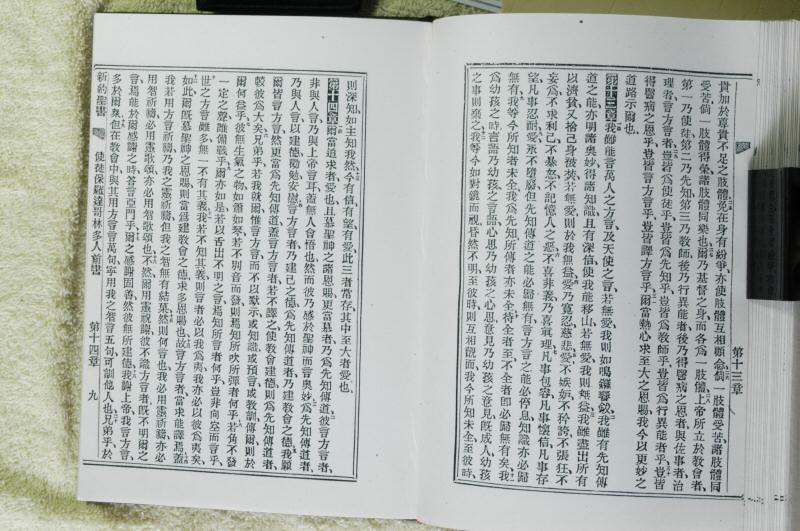 貴加於尊貴不足之肢體免在身有紛爭亦使肢體互相顧念倘一肢體受苦諸肢體同
受苦倘一肢體得榮諸肢體同樂也爾乃基督之身而各爲一肢體上帝所立於教會者
第一乃使徒第二乃先知第三乃教師後乃行異能者後乃得醫病之恩者與佐事者治
理者言方言者豈皆爲使徒乎豈皆爲先知乎豈皆爲教師乎豈皆爲行異能者乎豈皆
得醫病之恩乎豈皆言方言乎豈皆譯方言乎爾當熱心求至大之恩賜我今以更妙之
道路示爾也
第十三章 我雖能言萬人之方言及天使之言若無愛我則如鳴鑼響鈸我雖有先知傳
道之能亦明諸奧妙得諸知識且有深信使我能移山若無愛我則無益我雖盡出所有
以濟貧又捨己身被焚若無愛則於我無益愛乃寬忍慈悲愛不嫉妒不矜誇不張狂不
妄爲不求利己不暴怒不記憶人之惡不喜非義乃喜眞理凡事包容凡事懷信凡事存
望凡事忍耐愛永不墮廢但先知傳道之能必歸無有方言之能必停息知識亦必歸
無有我等今所知者未全我爲先知所傳者亦未全待全者至不全者即必歸無有矣我
爲幼孩之時言語乃幼孩之言語心思乃幼孩之心思意見乃幼孩之意見既成人幼孩
之事則棄之我等今如對鏡而視昏然不明至彼時則互相覿面我今所知未全至彼時
第十三章
則深知如主知我然今有信有望有愛此三者常存其中至大者愛也
第十四章 爾當追求者愛也且慕聖神之諸恩賜更當慕者乃爲先知傳道彼言方言者
非與人言乃與上帝言耳蓋無人會悟也然而彼乃感於聖神而言奧妙爲先知傳道者
乃與人言以建德勸勉安慰言方言者乃建己之德爲先知傳道者乃建教會之德我願
爾皆言方言然更當爲先知傳道蓋言方言者若不譯之使教會建德則爲先知傳道者
較彼爲大矣兄弟乎若我就爾惟言方言而不以默示或知識或預言或教訓傳爾則於
爾何益乎彼無生氣之物如簫如琴若不別音而發則焉知所吹所彈者何乎若角不發
一定之聲誰備戰乎爾亦如是若以舌出不明之言焉知所言者何乎豈非向空而言乎
世之方言雖多無一不有其義我若不知其義則言者必以我爲夷我亦必以彼爲夷矣
如此爾既慕聖神之恩賜則當爲建教會之德求多恩賜也故言方言者當求能譯焉蓋
我若用方言祈禱乃我之靈祈禱但我之智無有結果然則何言也我必用靈祈禱亦必
用智祈禱必用靈歌頌亦必用智歌頌也不然爾用靈祝謝彼不識方言者既不明爾之
言焉能於爾感謝之時答言亞們乎爾之感謝固善然彼無所建德我謝上帝我言方言
多於爾衆但在教會中與其用方言言萬句寧用我之智言五句可訓他人也兄弟乎於
新約聖書 使徒保羅達哥林多人前書 第十四章 九